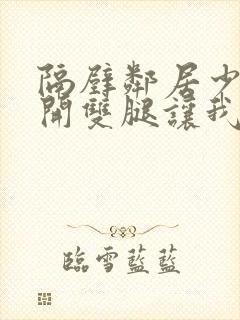 隔壁鄰居少
開雙腿讓我
臨雪藍藍